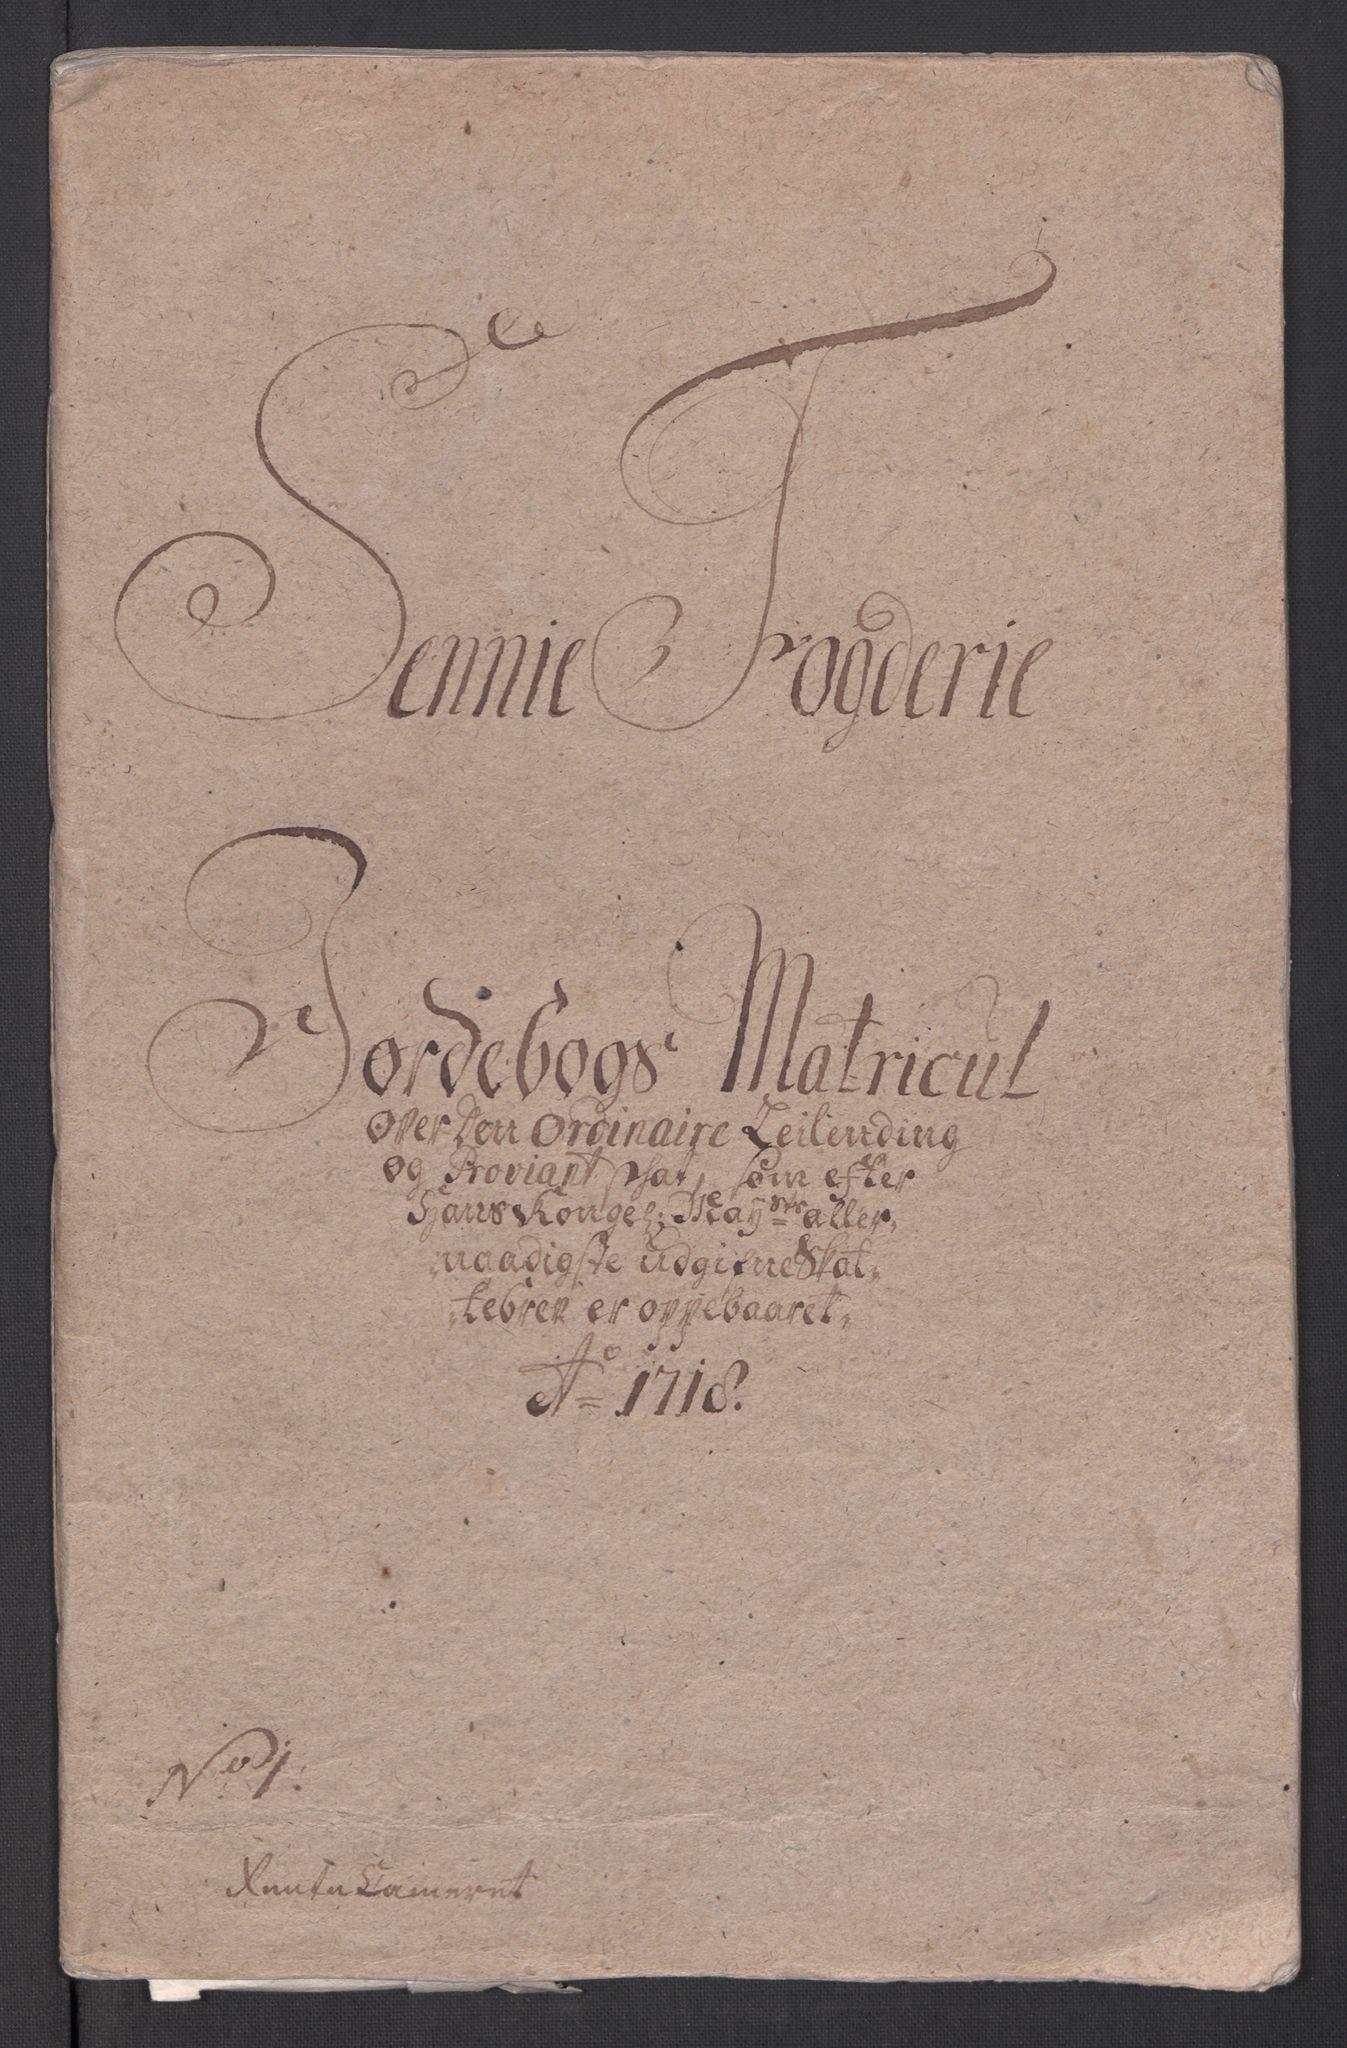 Sennie Fogderie
Jordebogs Matricul
over den ordinaire Leilending
og Proviant skat, som efter
Hans Kongel: Mayts aller,
naadigste udgifne Skat,
tebrev er oppebaaret,
Ao 1718.
No 1.
Rente Cameret